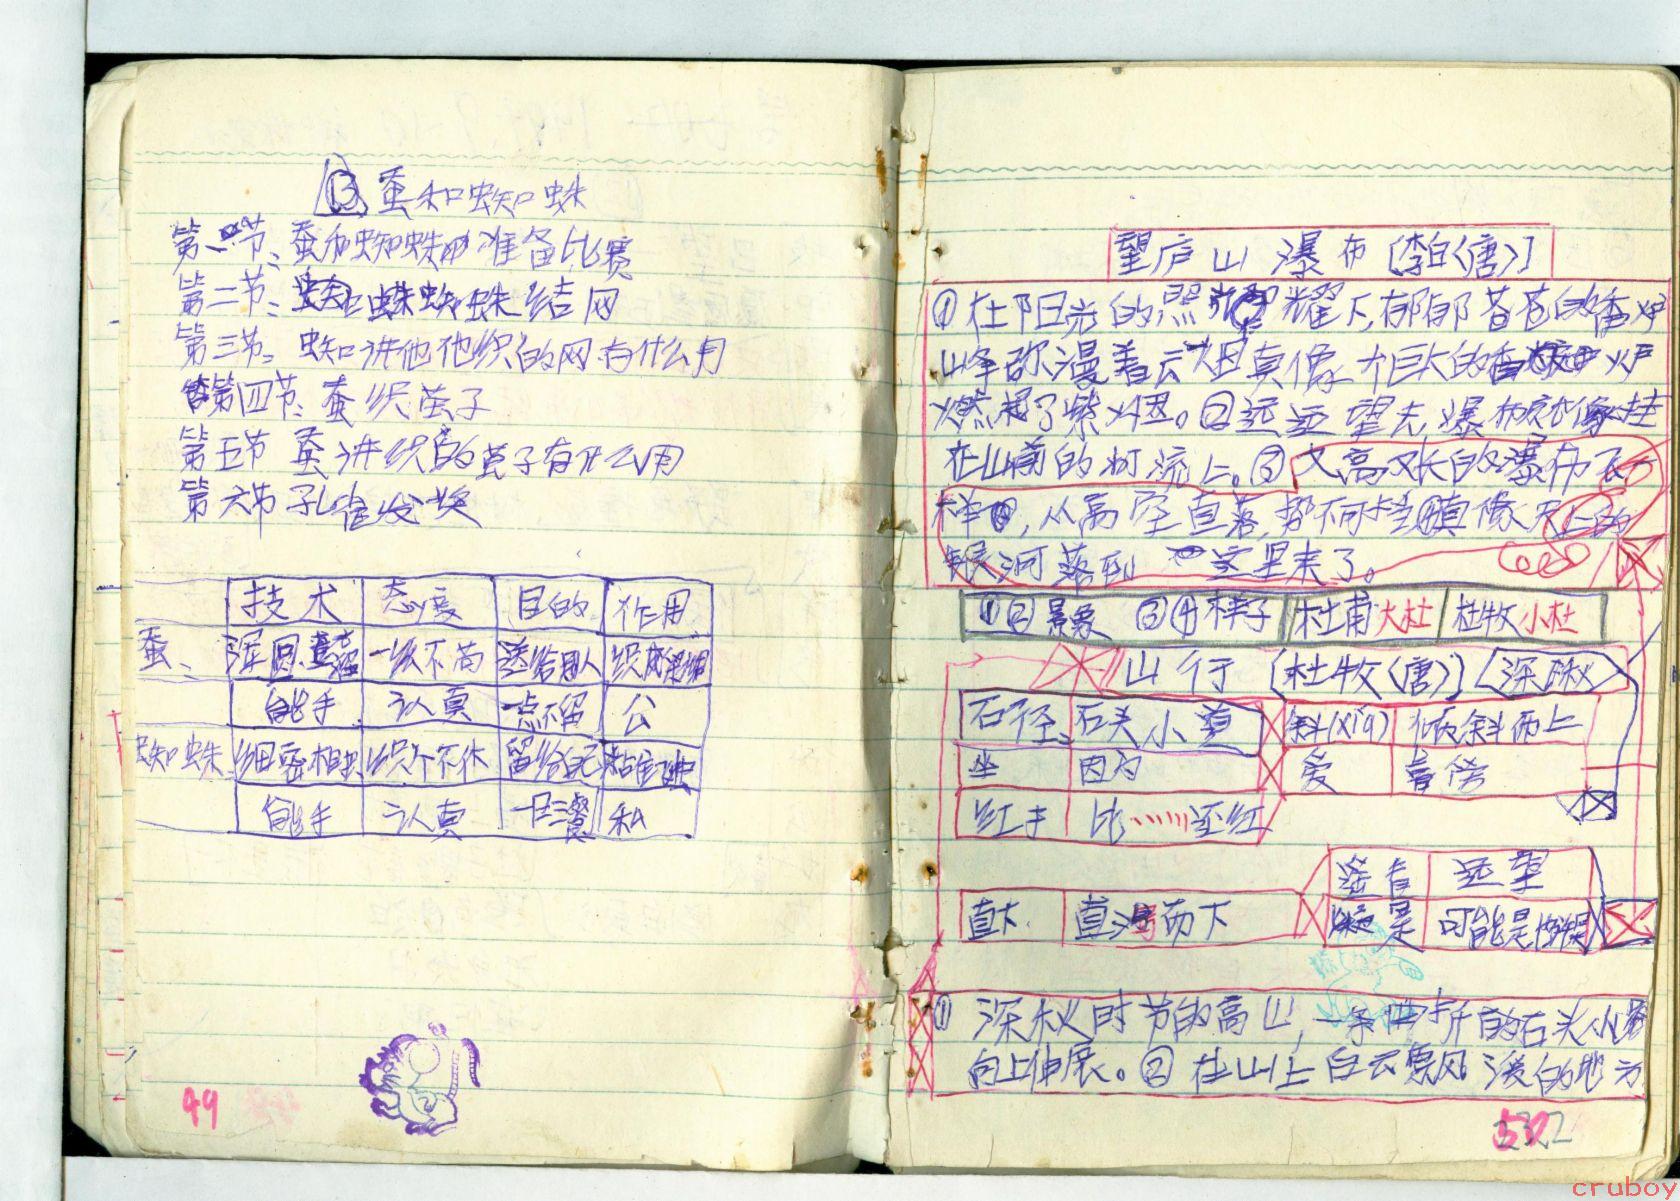 13 蚕和蜘蛛
第一节、蚕和蜘蛛准备比赛
第二节、蜘蛛结网
第三节、蜘讲他他织的网有什么用
第四节、蚕织茧子
第五节 蚕讲织的茧子有什么用
第六节 孔雀发奖
技术 态度 目的 作用
蚕、 浑圆 一丝不苟 送给 织成
能手 认真 一点不留 公
蜘蛛 细密相 织个不休 留给 粘住
能手 认真 一日三餐 私
49
望庐山瀑布〔李白〈唐〉〕
①在阳光的照耀下,郁郁苍苍的香炉
山峰弥漫着云烟真像个巨大的香炉
燃起了紫烟。②远远望去,瀑布就像挂
在山前的河流上。③又高又长的瀑布
,从高空直落,势不可挡④真像天上的
银河落到这里来了。
①②景象 ③④样子 杜甫大杜 杜牧小杜
山行 〔杜牧〈唐〉〕 深秋
石径、石头小道 斜(xiá) 倾斜而上
坐 因为 爱 喜
红于 比……还红
遥看 远望
直下 直 而下 疑是 可能是
① 深秋时节的高山,一条曲折的石头小路
向上伸展。② 在山上白云 的地方
cruboy